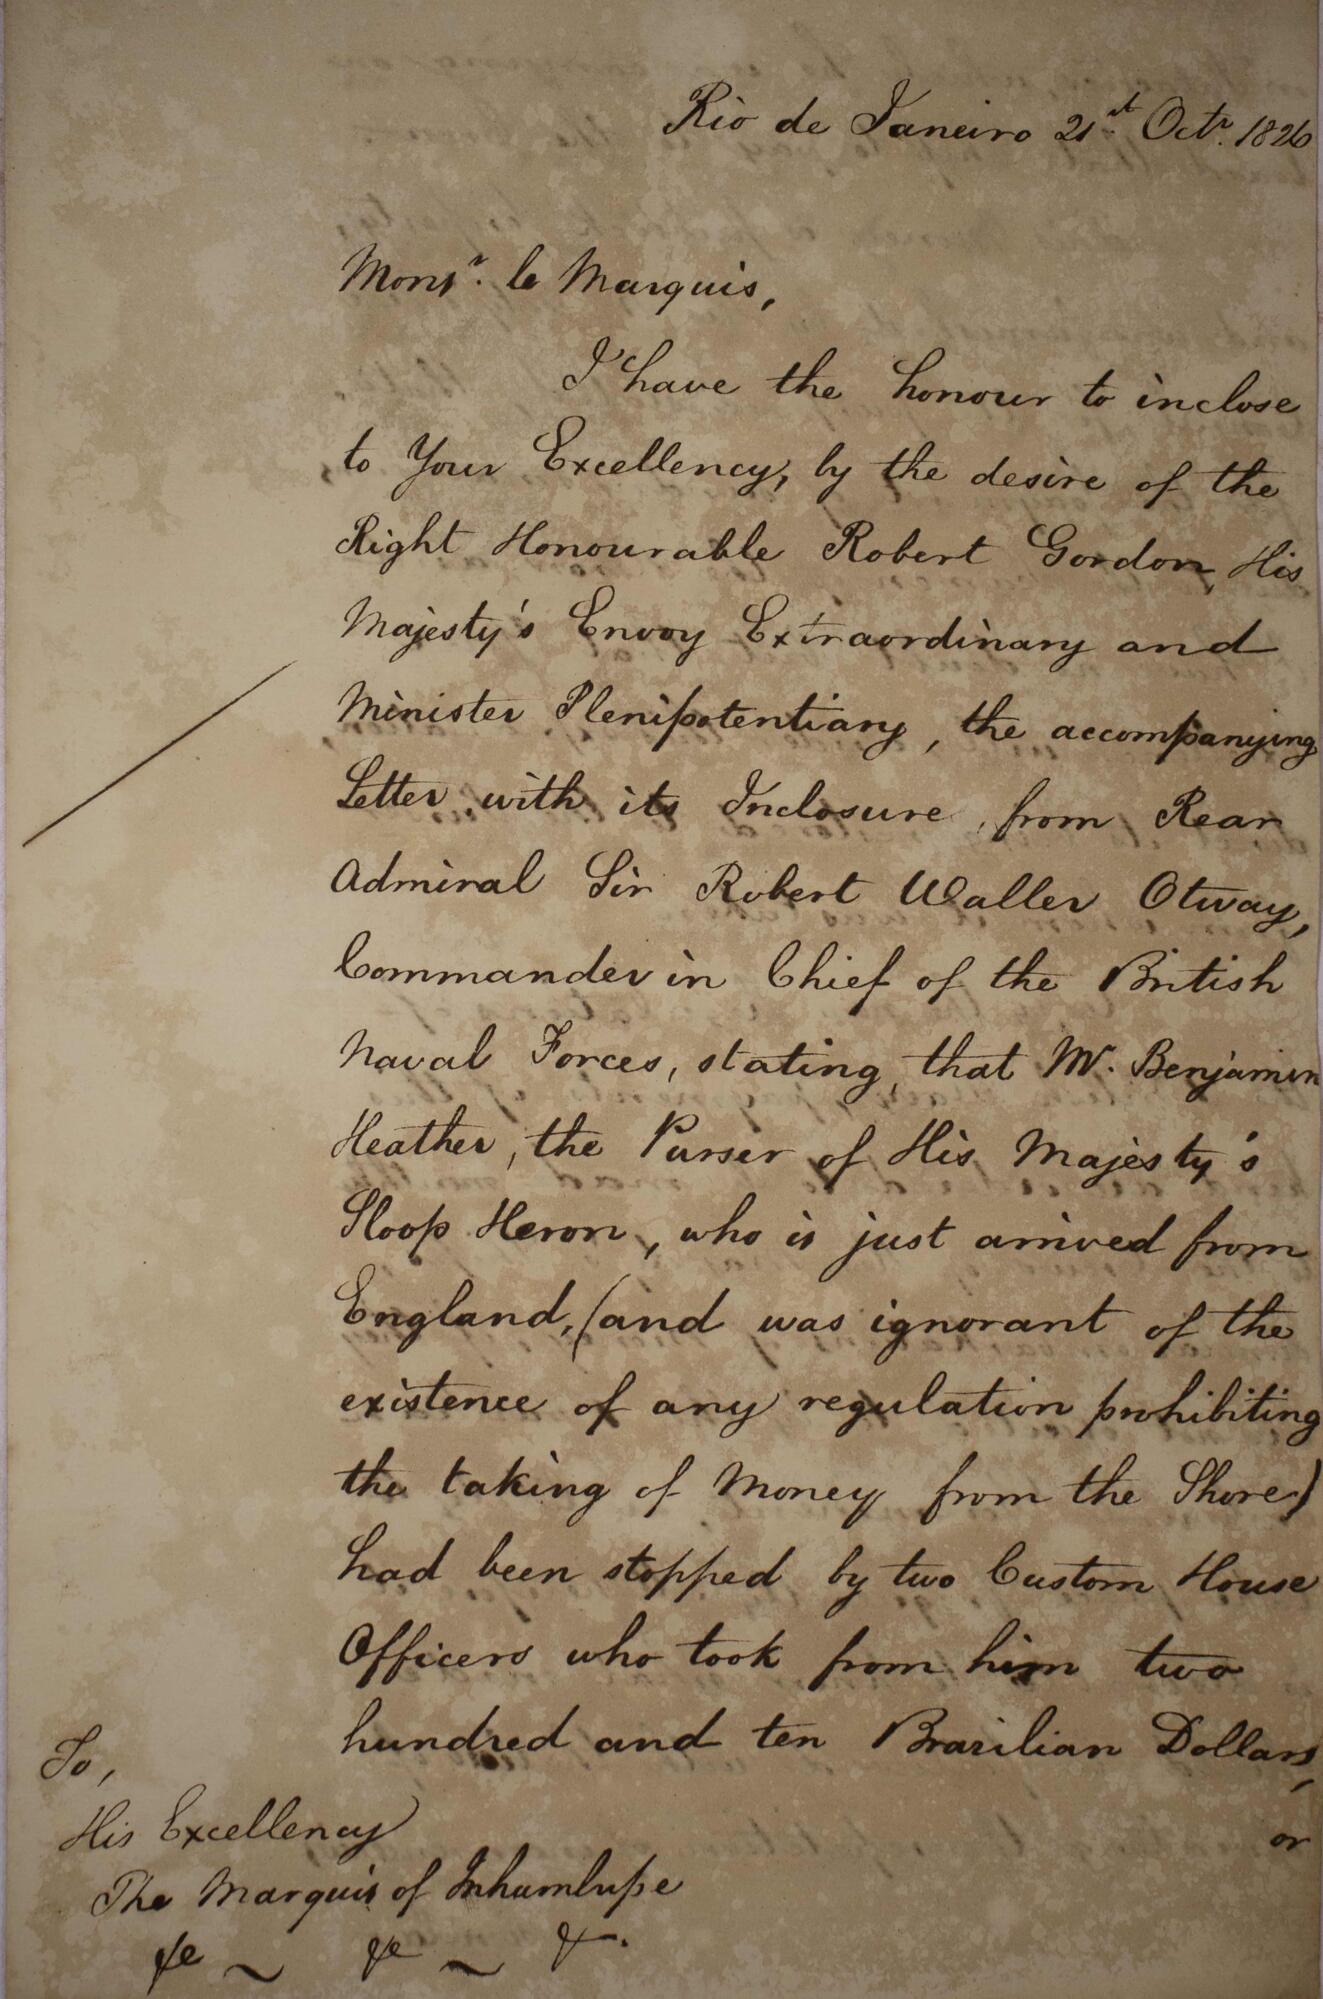 Rio de Janeiro 21st. Octr. 1826
Monsr. le Marquis,
I have the honour to inclose
to Your Excellency, by the desire of the
Right Honourable Robert Gordon, His
Majesty's Envoy Extraordinary and
Minister Plenipotentiary, the accompanying
Letter with its Inclosure, from Rear
Admiral Sir Robert Waller Otway,
Commander in Chief of the British
Naval Forces, stating, that Mr. Benjamin
Heather, the Purser of His Majesty's
Sloop Heron, who is just arrived from
England, (and was ignorant of the
existence of any regulation prohibiting
the taking of Money from the Shore)
had been stopped by two Custom House
Officers who took from him two
hundred and ten Brazilian Dollars,
or
To,
His Excellency
The Marquis of Inhumlupe
&c ~ &c ~ &.